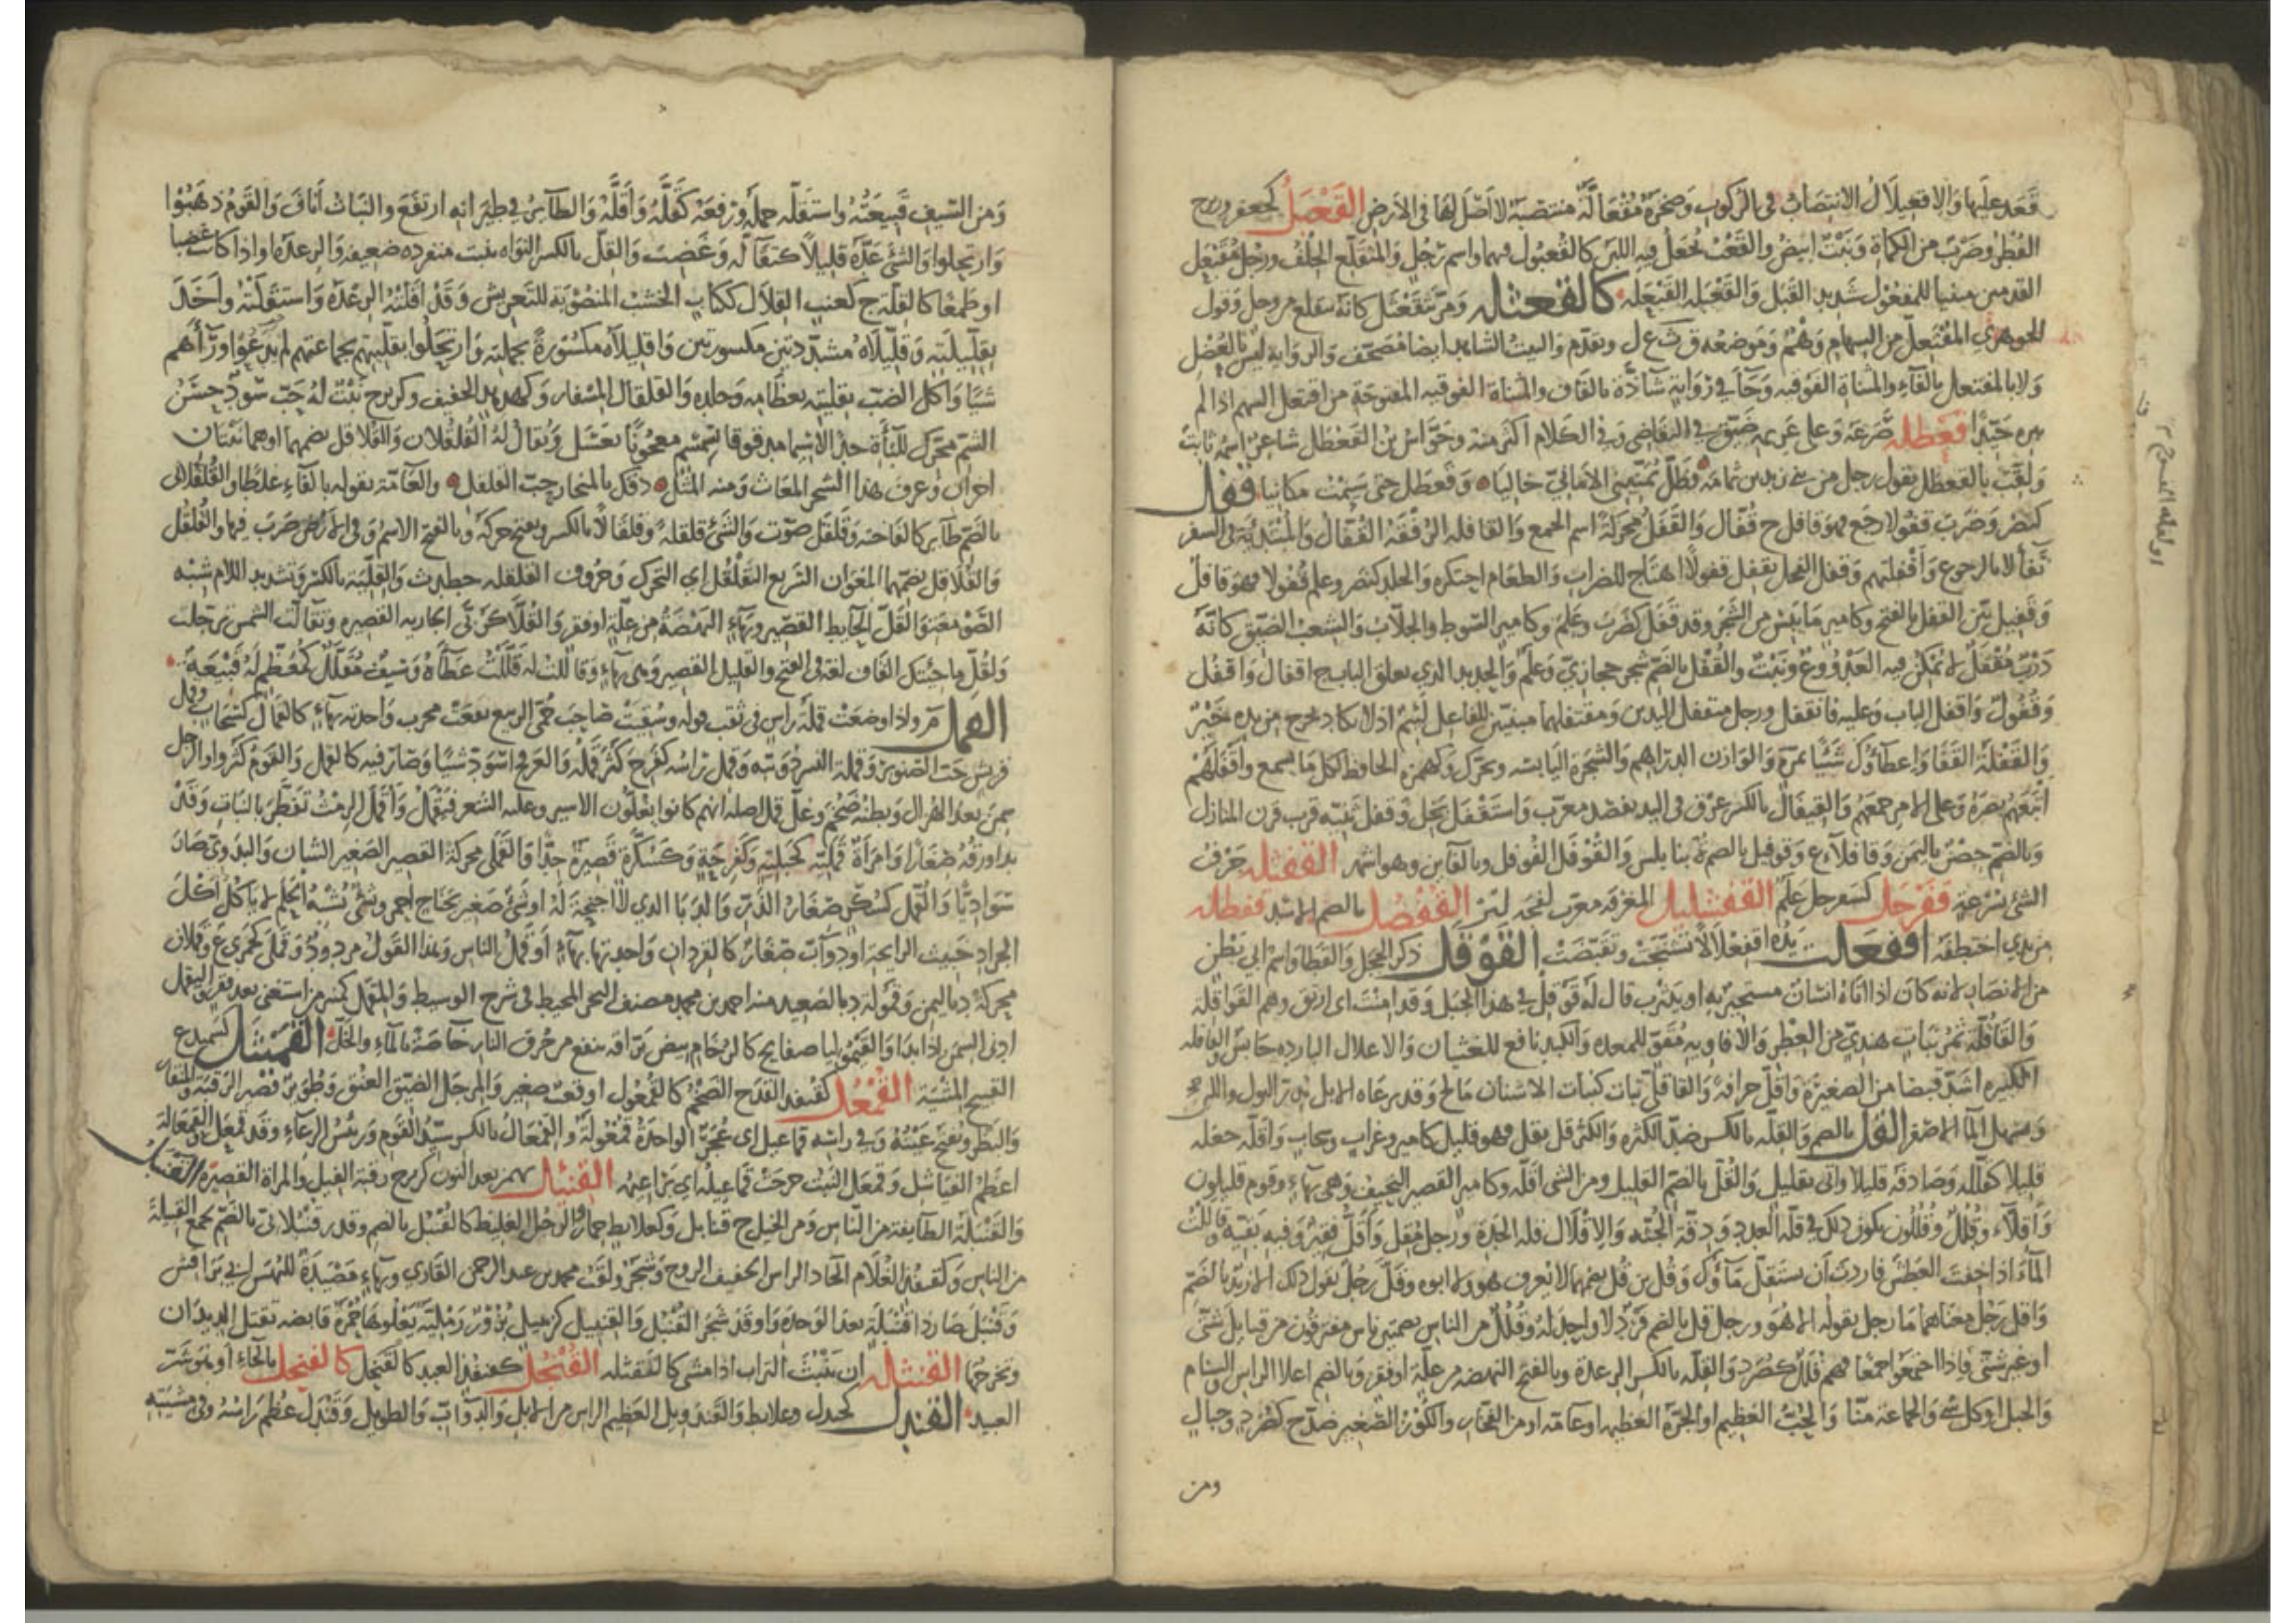 قَعَدَ عليها وَالاقْعِيلَالُ الانتِصَابُ في الرُّكوبِ وَصَخْرَةٌ مُقْعَالَّةٌ منتصبة لا اَصْلَ لَهَا في الاَرْضِ القَعْبَلُ كجعفر وزبرج
الفُطْرُ وضَرْبٌ من الكمأة وَنَبْتٌ ابيَضُ والقَعْبُ يُجعَلُ فيه اللبَن كالقُعْبُول فيهما واسم رَجُل وَالمُتَقَلِّع الجِلْف ورجل مُقَعْبَل
القدمين مبنيا للمفعول شديد القَبَل وَالقَعْبَلة القَبْعَلة كالقَعْثَلَة وَمَرَّ يَتَقَعْثَل كانه يتقلع من وحل وقول
الجوهري المُقْتَعِل من السهام وَهْمٌ وَمَوضعه ق ث ع ل وتقدّم والبيتُ الشاهد ايضا مُصَحّف والرواية ليس بالعُصْل
وَلا بالمفتعل بالفاء والمُثناة الفوقية وَجَاءَ في رِوَاية شاذّة بالقاف والمُثناة الفوقية المفتوحة من اقتعل السهم اذا لم
يبره جَيّدا قَعْطَلَه صَرَعَه وَعلى غريمه ضَيَّقَ في التقاضي وَفي الكلام اكثر منه وجَوّاسُ بن القَعْطَل شاعر اسمه ثابت
وَلقّب بالقعطل بقول رجل من بني زيد بن ثمامة فظَلَّ يُمَنّيني الاَمَانِيَّ خاليا وَقَعْطَل حتى سَئِمْتُ مكانيا قفل
كنصر وَضَرَبَ قفولا رجع فهو قافل ج قُفّال وَالقَفَلُ محركة اسم الجمع وَالقافلة الرُّفْقَة القُفّالُ وَالمُبْتَدِئَة في السفر
تَفَأُّلا بالرجوع وَاقْفَلْتهم وَقفل الفحل يقفل قفولا اهتاج للضراب وَالطعام احتكره وَالجلد كنصر وعلم قُفُولا فهو قافل
وَقَفِيل يَبِسَ القفل بالفتح وكامير مَا يَبِسَ من الشجَرِ وقد قفَل كضَرَبَ وعَلِم وكامير السّوط والجلّاب وَالشِعب الضيّق كانّهُ
دَرْبٌ مُقْفَلٌ لا يُمْكِن فيه العَدْوُ وع ونَبْتٌ والقُفْل بالضَّم شجر حجازيّ وَعلَمٌ وَالحديد الذي يغلق الباب ج اقفال وَاقفُل
وَقُفُولٌ وَاقفل الباب وَعليه فانقفل ورجل متقفل اليدين وَمقتفلهما مبنيّين للفاعل لئيمٌ اذ لا يكاد يخرج من يده خَيْرٌ
وَالقَفْلَة القَفَا وَاعطاؤُك شَيئًا بمرّة وَالوازن الدراهم والشجَرة اليَابسة ويحرّك وَكهمزة الحافظ لكل ما يسمع واَقْفَلَهُمْ
اتْبَعَهُم بصرَهُ وَعلى الامر جمَعَهُم وَالقِيفَالُ بالكسر عِرْق في اليد يفصد معرّب وَاستَقْفَل بَخِل وَقفل ثَنِيّة قرب قرن المنازل
وَبالضمّ حِصْنٌ باليمَن وَقافلاء ع وَقوفيل بالضم ة بنابلس وَالقَوْفَل الفُوفل وبالفاءين وهو اشهر القفثلة جَرْفُ
الشئ بسُرْعة قَفَرْجَل كسفرجل عَلَم القَفْشَلِيل المغرفة معرّب كفجه ليز القُفْصُل بالضم الاسد قَفْطَلَه
من يدي اختطفَه اقفعَلت يَدُه اقفعْلَالًا تشَنّجَتْ وَتقبّضَتْ القَوْقَل ذكر الحجل وَالقَطا واسم ابي بَطْنٍ
من الانصار لانه كان اذا اتاهُ انسَانٌ مستجير به او يَثرب قال لَه قَوْقِلْ في هذا الجبَل وَقد امِنْتَ اى ارْتَقِ وهم القَوَاقِلَة
وَالقَاقُلَّة ثَمَرُ نبَاتٍ هنديّ من العِطر وَالافاويه مُقَوٍّ للمعدة وَالكَبِد نافع للغثيان وَالاعلال البارده حَابسٌ القاقلة
الكبيرة اشَدّ قَبضا من الصغيرة وَاقلّ حرافة وَالقاقُلَّى نبات كنبات الاشنان مَالح وَقد يرعَاه الابل يُدِرّ البول واللبن
وَيسهل الماء الاصفر القُل بالضم وَالقِلّه بالكسر ضدّ الكثره وَالكثر قل يقل فهو قليل كامير وغراب وسحاب وَاقلّه جعله
قليلا كقلّله وَصَادفه قليلا وَاتى بقليل وَالقُلّ بالضمّ القليل ومن الشئ اقلّه وكامير القصير النحيف وَهي بهاء وقوم قليلون
وَاَقِلَّاء وقُلُل وقُلُلُون يكون ذلك في قلّة العدد وَدِقّة الجُثّة وَالاِقْلَال قلة الجِدَة ورجل مُقِل وَاَقَلُّ فقير وَفيه بقيّة وقالَلْتُ
الماءَ اذا خِفتَ العَطَش فاردتَ ان يستَقِلّ ماؤك وَقُل بن قُل بضمهما لا يُعرف هو ولا ابوه وقَلّ رجُلٌ يقول ذلك الا زيدٌ بالضمّ
وَاقل رَجُلٌ معناهما ما رجل يقوله الا هو ورجل قل بالضم فَرْدٌ لا واحِد لهُ وَقُلُلٌ من الناس بضمتين ناس متفرقون من قبايل شتى
او غير شتى فاذا اجتمعوا جمعا فهم قلل كصُرَد وَالقلّه بالكسر الرعدة وبالفتح النهضه من علّة او فقر وَبالضم اعلا الراس وَالسنام
وَالجبل او كل شئ وَالجماعة منّا وَالحُبُّ العَظيم او الجَرّة العظيمه او عامّه او من الفخار وَالكُوزُ الصّغير ضدّ ج كصُرَد وجبال
ومن
وَمن السَّيفِ قَبِيعَتُهُ واستَقَلّه حملَه ورفعَه كَقَلَّهُ وَاَقَلَّهُ وَالطائرُ في طيَرَانِه ارتفعَ والنبَاتُ اَنافَ وَالقَوْمُ ذَهَبُوْا
وَارتحلوا وَالشئَ عَدَّهُ قليلًا كتقَالَّه وَغَضِبَ وَالقِلّ بالكسر النواه تنبت منفرده ضعيفه وَالرعدَه او اذا كانت غضبا
او طَمَعًا كالقِلّة ج كعنب القِلَال ككتاب الخشب المنصُوبة للتَعريش وَقد اَقَلَّتْهُ الرِّعْدَة وَاستَقَلَّتْهُ وَاخَذَ
بقِلّيلَتِه وَقِلّيلَاهُ مشدّدتين مكسورتين وَاقليلاه مكسُورة بجملته وَارتحَلُوا بقلّيّتهم بجماعتهم لم يَدَعُوا ورَآءَهم
شَيئا وَاكل الضبّ بقلّيّته بعظامه وَجلده وَالقلقال المِسْفار وَكهدهد الخفيف وكزبرج نَبْتٌ لهُ حَبّ اسْوَدُ حسَنُ
الشمّ محرّك للبَاءَة جدا لا سيّما مدقوقا بسمسم معجُونًا بعَسَل وَيُقال لهُ القُلْقُلَان وَالقُلاقل بضمهما او هما نَبْتان
اخران وَعرق هذا الشجر المغاث وَمنه المَثَل دقّك بالمنحاز حب القلقل والعامّة بقوله بالفاء غلَطًا والقُلْقُلانى
بالضّم طَائر كالفاختة وَقَلْقَلَ صَوّت وَالشَئَ قلقلة وقلقالًا بالكسر ويفتح حركَه وَبالفتح الاسْمُ وَفي الارض ضرَبَ فيها والقُلْقُل
وَالقُلَاقِل بضمّهما المِعْوَان السَّريع التَقَلْقُل اى التحَرُّك وَحُرُوف القلقله جطدبق وَالقِلّيّة بالكسر وتشديد اللام شِبْه
الصَّوْمَعَة وَالقَلّ الحايط القصير وبهاء النهضَةُ من علّة او فقر وَالقُلَّى كَرُبَّى الجارية القصيره وتقالّت الشمس ترحّلت
وَلقُلّ ما جِئتُك القاف لغة في الفتح والقليل القصير وَهى بهاء وَقالَلْتُ له قَلَّلْتُ عطَآءَهُ وَسَيفٌ مُقَلَّلٌ كمُعَظّم له قَبيعَةٌ
القمل م واذا وضعت قملة راس في ثقب فولة وسُقِيَتْ صَاحبَ حُمّى الربع نفعَتْ مجرب وَاحدته بهاء كالقَمَال كسَحاب وقمل
قريش حَب الصّنوبر وَقملة النسر دُوَيْبّة وَقَمِل رَاسُه كفرح كَثُرَ قَمْلُه وَالعَرفجُ اسْوَدّ شيئا وَصَارَ فيه كالقمل وَالقَوْمُ كثُروا والرجل
سَمِنَ بعد الهزال وبطنُه ضَخُمَ وَغُلّ قمل اصله انهم كانوا يغلّون الاسير وعليه الشعر فيَقْمَلُ وَاَقْمَلَ الرِّمْثُ تفَطّرَ بالنبات وَقد
بدا ورقه صِغارًا وَامرَأةٌ قَمَلِيّة كجبَليّة وَكفَرِحَة وَكسُكّرة قَصِيرةٌ جدّا وَالقَمَلِيّ محركة القصير الصَغير الشان وَالبدَويّ صَارَ
سَوَادِيًّا وَالقُمّل كسُكّر صغار الذّرّ وَالدَّبا الذي لا اجنحَة لَهُ او شَئ صَغير بجناح احمر وشئ يُشْبه الحَلَم لا يَاكُل اَكْلَ
الجراد خَبيث الرايحة او دَوابّ صِغَار كالقردان وَاحدتها بهاء او قمل الناس وَهذا القَول مردودٌ وَقَمَلَى كجَمَزى ع وَقملان
محركة د باليمن وَقَمُولَة د بالصَعيد منه احمد بن محمد مصنف البحر المحيط في شرح الوسيط وَالمِقْمَل كمِنبر من استغنى بعد فقر والتقمّل
ادنى السِمَن اذا بدا وَالقَيْمُولِيَا صفايح كالرُّخام بيض برّاقه ينفع من حرق النار خاصّة بالماء والخل القَمَيْثَل كسَميدع
القبيح المِشيَة القُمْعُل كقنفذ القدح الضخْم كالقُمْعُول او قعبٌ صغير وَالمِرجَل الضيق العنُق وَطُويَرٌ قصِير الرقبه والمنقار
وَالبظر ويُفتح عَينُهُ وَفي راسِه قماعيل اى عُجَرٌ الواحدَة قُمْعُولَة وَالقِمْعَال بالكسر سيّدُ القَوم وَرَئيسُ الرِعاء وَقد قَمْعَل والقِمْعَالة
اعظم الفياشل وَقمعَل النبت خرجت قماعيله اى بَراعيمه القَنْئِل بهمز بعد النون كزبرج رقبة الفيل والمراة القصيرة القنبل
وَالقَنْبَلَة الطايفة من النّاس وَمن الخيل ج قنابل وَكعُلابط حِمار والرجل الغليظ كالقُنْبُل بالضم وقدر قنبُلانىّ بالضم تجمع القبيلة
من الناس وَكقنفذ الغُلَام الحاد الراس الخفيف الروح وَشجر ولقب محمد بن عبد الرحمن القاري وبهاء مَصْيَدَة للنُهَس اى ابي براقش
وَقَنْبَلَ صَار ذا قَنْبَلَة بعد الوحده وَاوقَد شجَرَ القُنْبل وَالقِنبيل كزنبيل بُزُوْرٌ رَمْليّة يَعْلُوها حُمْرَة قابضه تقتل الديدان
وَتخرجها القَنْثَلَة ان يَنْبُثَ التراب اذا مشى كالنقثله القُنْجُل كقنفذ العبد كالقنجل كالقُنْحُل بالحاء او هو شر
العبيد القَنْدل كجندل وعلابط وَالقَنْدَوِيل العظيم الراس من الابل وَالدوابّ وَالطويل وَقَنْدَلَ عَظُمَ رَاسُهُ وفي مشيته